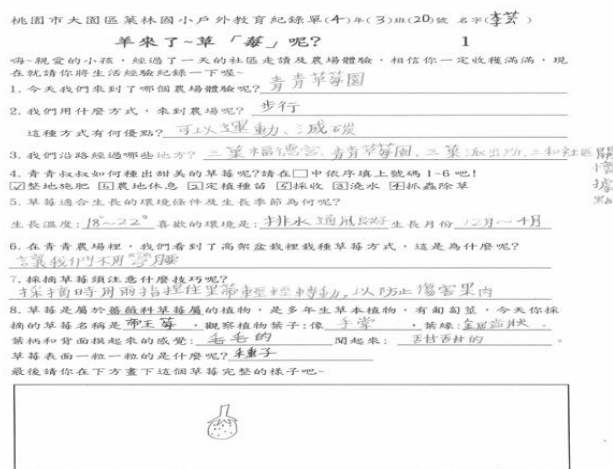 桃園市大園區菓林國小戶外教育紀錄單(4)年(3)班(20)號 名字(李芸)
羊來了~草「莓」呢? 1
嗨~親愛的小孩,經過了一天的社區走讀及農場體驗,相信你一定收穫滿滿,現
在就請你將生活經驗紀錄一下喔~
1.今天我們來到了哪個農場體驗呢? 青青草莓園
2.我們用什麼方式,來到農場呢? 步行
這種方式有何優點? 可以運動、減碳
3.我們沿路經過哪些地方? 三菓福德宮、青青草莓園、三菓派出所、三和社區關懷據點
4.青青叔叔如何種出甜美的草莓呢?請在□中依序填上號碼1~6吧!
整地施肥 農地休息 定植種苗 採收 澆水 抓蟲除草
5.草莓適合生長的環境條件及生長季節為何呢?
生長溫度:18°~22° 喜歡的環境是:排水通風良好 生長月份 12月~4月
6.在青青農場裡,我們看到了高架盆栽裡栽種草莓方式,這是為什麼呢?
讓我們不用彎腰
7.採摘草莓須注意什麼技巧呢?
採摘時用兩指捏住果蒂輕輕轉動,以防止傷害果肉
8.草莓是屬於薔薇科草莓屬的植物,是多年生草本植物,有匍匐莖,今天你採
摘的草莓名稱是 帝王莓,觀察植物葉子:像 手掌,葉緣:鋸齒狀。
葉柄和背面摸起來的感覺: 毛毛的 聞起來: 甜甜的。
草莓表面一粒一粒的是什麼呢? 種子
最後請你在下方畫下這個草莓完整的樣子吧~